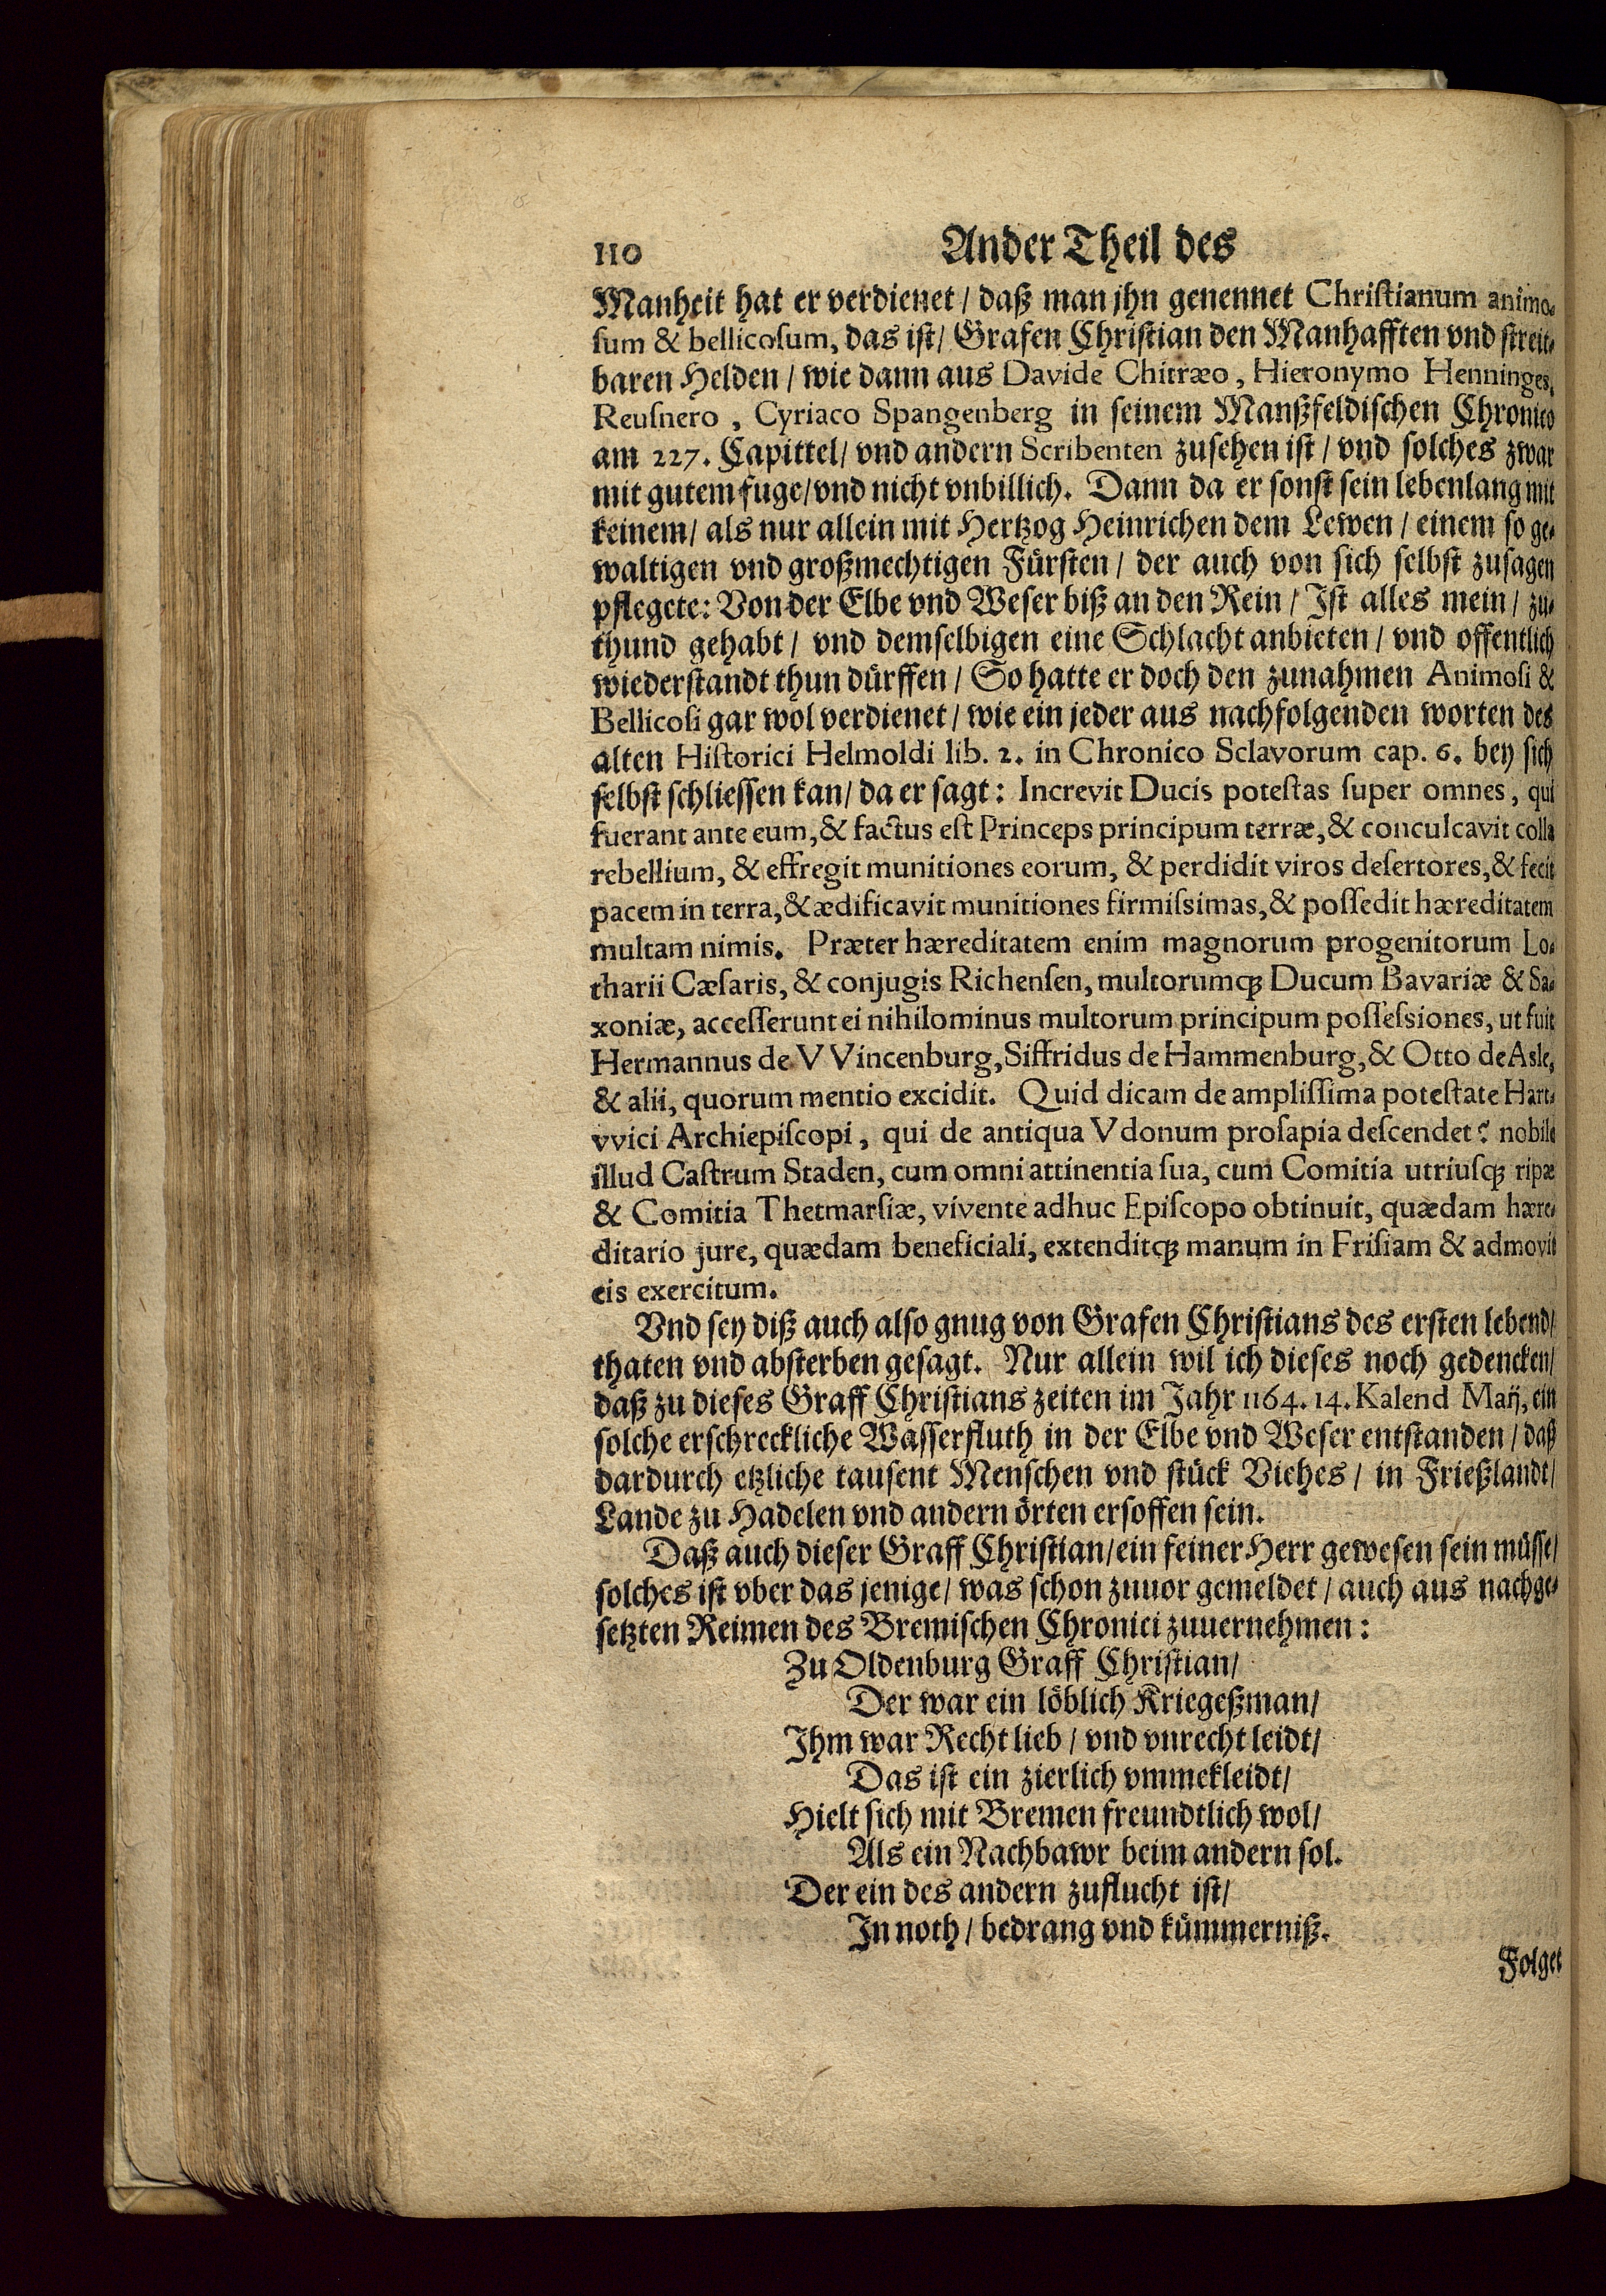 110 Ander Theil des
Manheit hat er verdienet / daß man jhn genennet Chriſtianum animo-
ſum & bellicoſum, das iſt / Grafen Chriſtian den Manhafften vnd ſtreit-
baren Helden / wie dann aus Davide Chitræo, Hieronymo Henninges,
Reuſnero, Cyriaco Spangenberg in ſeinem Manßfeldiſchen Chronico
am 227. Capittel / vnd andern Scribenten zuſehen iſt / vnd ſolches zwar
mit gutem fuge / vnd nicht vnbillich. Dann da er ſonſt ſein lebenlang mit
keinem / als nur allein mit Hertzog Heinrichen dem Lewen / einem ſo ge-
waltigen vnd großmechtigen Fürſten / der auch von ſich ſelbſt zuſagen
pflegete: Von der Elbe vnd Weſer biß an den Rein / Iſt alles mein / zu-
thund gehabt / vnd demſelbigen eine Schlacht anbieten / vnd offentlich
wiederſtandt thun dürffen / So hatte er doch den zunahmen Animoſi &
Bellicoſi gar wol verdienet / wie ein jeder aus nachfolgenden worten des
alten Hiſtorici Helmoldi lib. 2. in Chronico Sclavorum cap. 6. bey ſich
ſelbſt ſchlieſſen kan / da er ſagt: Increvit Ducis poteſtas ſuper omnes, qui
fuerant ante eum, & factus eſt Princeps principum terræ, & conculcavit colla
rebellium, & effregit munitiones eorum, & perdidit viros deſertores, & fecit
pacem in terra, & ædificavit munitiones firmiſsimas, & poſſedit hæreditatem
multam nimis. Præter hæreditatem enim magnorum progenitorum Lo-
tharii Cæſaris, & conjugis Richenſen, multorumq́; Ducum Bavariæ & Sa-
xoniæ, acceſſerunt ei nihilominus multorum principum poſſeſsiones, ut fuit
Hermannus de VVincenburg, Siffridus de Hammenburg, & Otto de Asle,
& alii, quorum mentio excidit. Quid dicam de ampliſſima poteſtate Hart-
vvici Archiepiſcopi, qui de antiqua Vdonum proſapia deſcendet? nobile
illud Caſtrum Staden, cum omni attinentia ſua, cum Comitia utriuſq́; ripæ
& Comitia Thetmarſiæ, vivente adhuc Epiſcopo obtinuit, quædam hære-
ditario jure, quædam beneficiali, extenditq́; manum in Friſiam & admovit
eis exercitum.
Vnd ſey diß auch alſo gnug von Grafen Chriſtians des erſten lebend /
thaten vnd abſterben geſagt. Nur allein wil ich dieſes noch gedencken /
daß zu dieſes Graff Chriſtians zeiten im Jahr 1164. 14. Kalend Maij, ein
ſolche erſchreckliche Waſſerfluth in der Elbe vnd Weſer entſtanden / daß
dardurch etzliche tauſent Menſchen vnd ſtück Viehes / in Frießlandt /
Lande zu Hadelen vnd andern örten erſoffen ſein.
Daß auch dieſer Graff Chriſtian / ein feiner Herr geweſen ſein müſſe /
ſolches iſt vber das jenige / was ſchon zuuor gemeldet / auch aus nachge-
ſetzten Reimen des Bremiſchen Chronici zuuernehmen:
Zu Oldenburg Graff Chriſtian /
Der war ein löblich Kriegeßman /
Ihm war Recht lieb / vnd vnrecht leidt /
Das iſt ein zierlich vmmekleidt /
Hielt ſich mit Bremen freundtlich wol /
Als ein Nachbawr beim andern ſol.
Der ein des andern zuflucht iſt /
In noth / bedrang vnd kümmerniß.
Folget